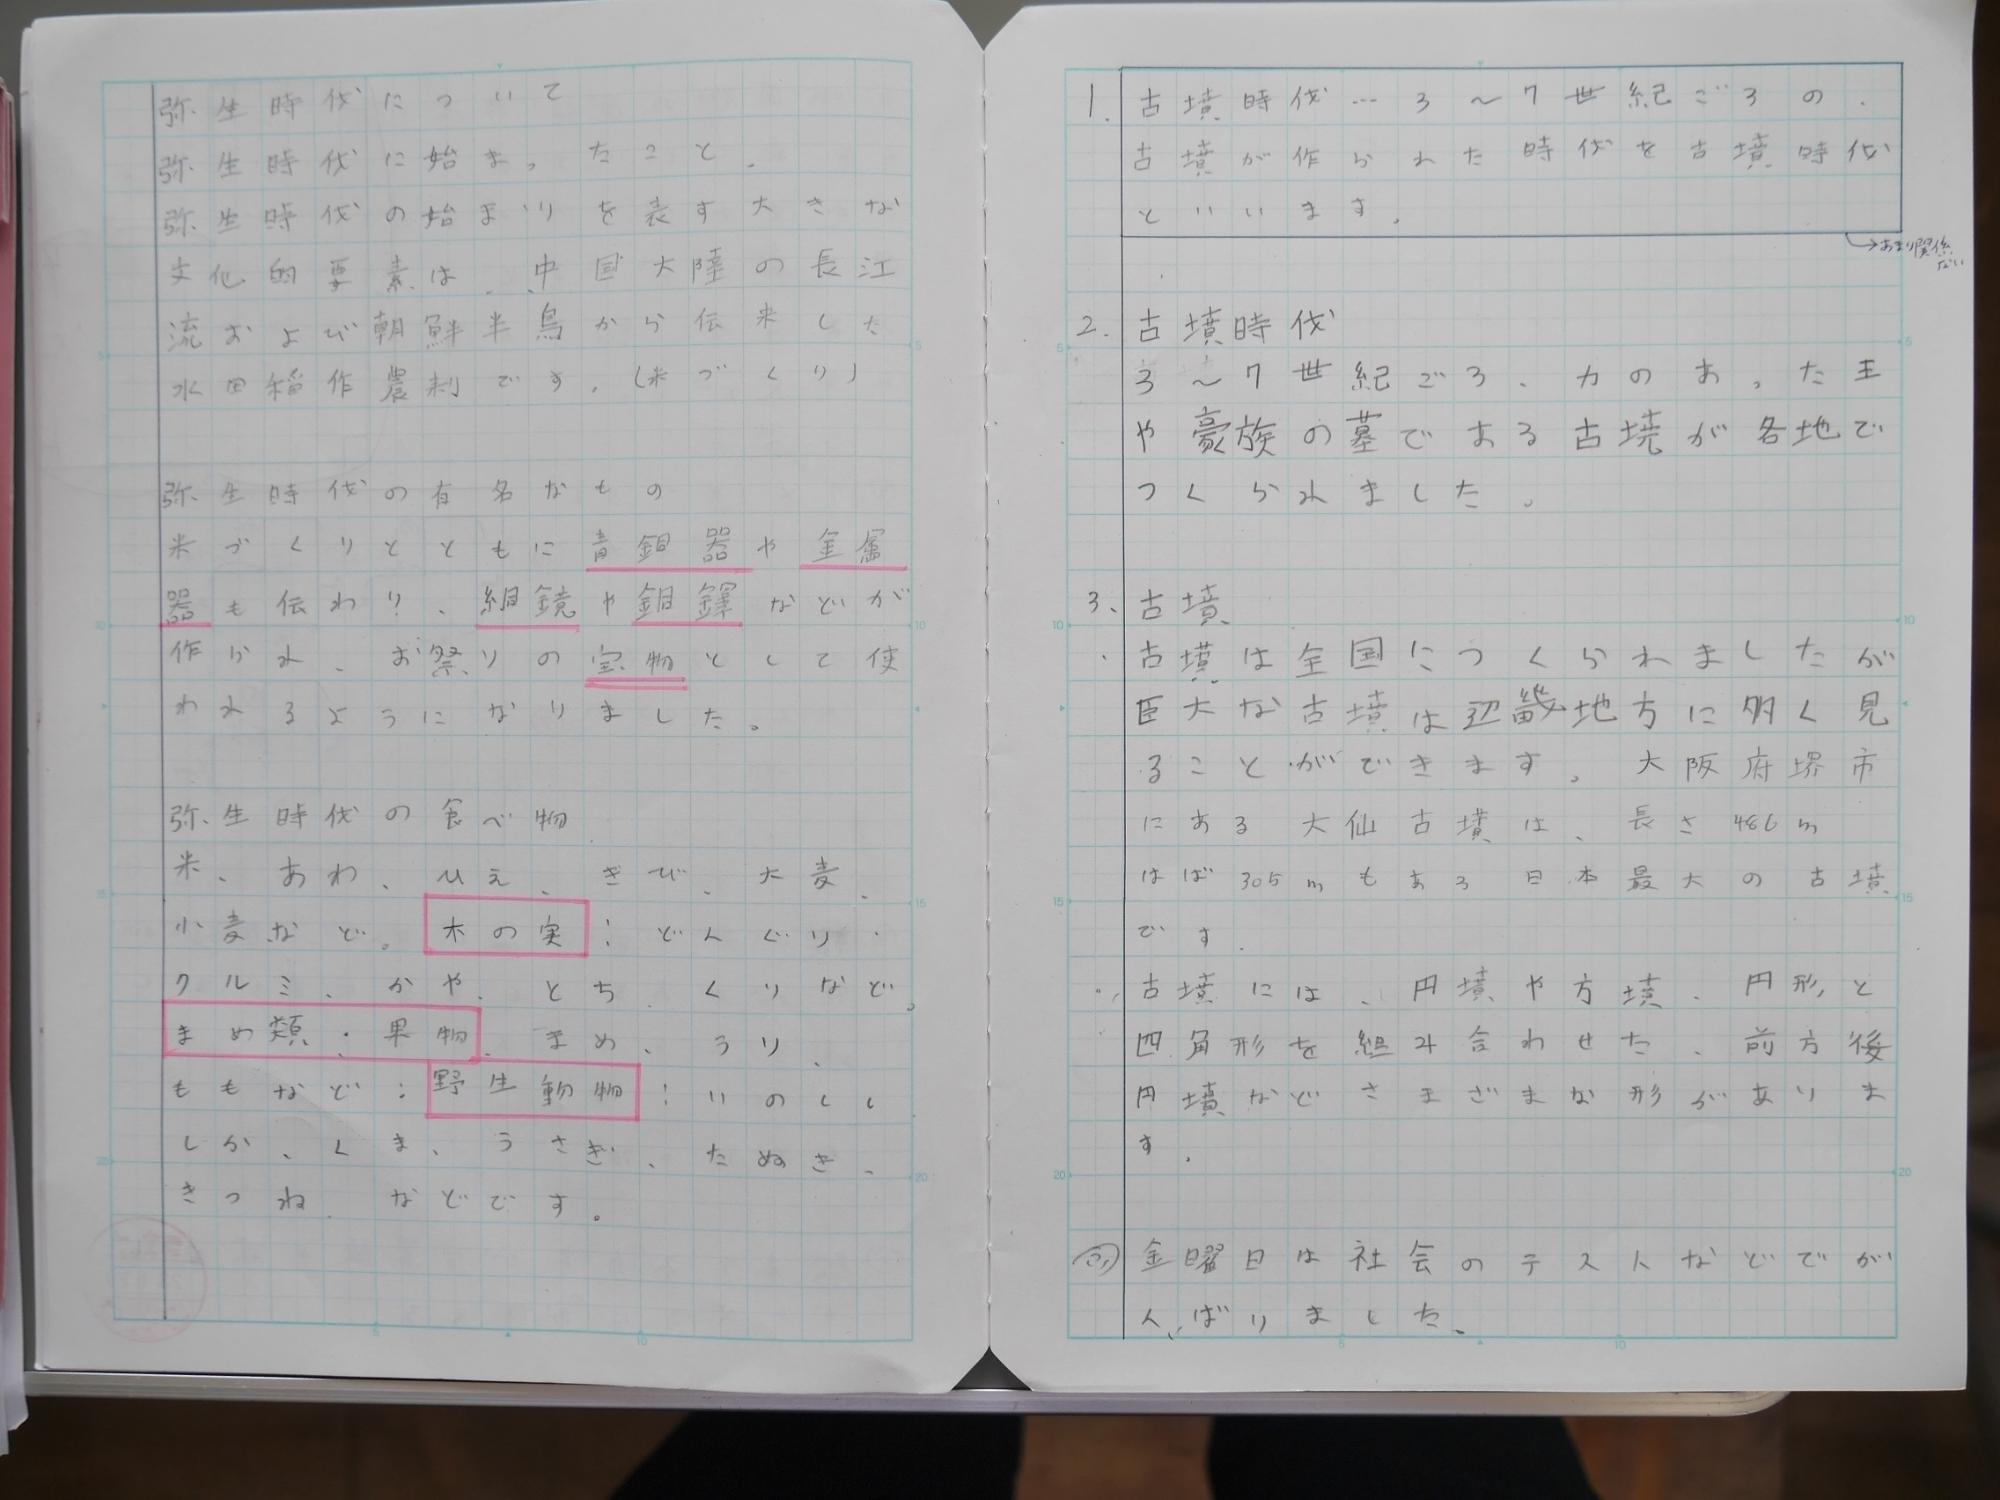 弥生時代について
弥生時代に始まったこと。
弥生時代の始まりを表す大きな
文化的要素は、中国大陸の長江
流および朝鮮半島から伝来した
水田稲作農耕です。(米づくり)
弥生時代の有名なもの
米づくりとともに青銅器や金属
器も伝わり?、銅鏡や銅鐸などが
作られ、お祭りの宝物として使
われるようになりました。
弥生時代の食べ物
米、あわ、ひえ、きび、大麦、
小麦など。木の実:どんぐり・
クルミ、かや、とち、くりなど。
まめ類・果物、まめ、うり、
ももなど:野生動物:いのしし
しか、くま、うさぎ、たぬき、
きつね、などです。
1. 古墳時代…3〜7世紀ごろの、
古墳が作られた時代を古墳時代
といいます。
→あまり関係
ない
2. 古墳時代
3〜7世紀ごろ、力のあった王
や豪族の墓である古墳が各地で
つくられました。
3、古墳
・古墳は全国につくられましたが
巨大な古墳は近畿地方に多く見
ることができます。大阪府堺市
にある大仙古墳は、長さ486m
はば305mもある日本最大の古墳
です。
・古墳には、円墳や方墳、円形と
四角形を組み合わせた、前方後
円墳などさまざまな形がありま
す。
金曜日は社会のテストなどでが
んばりました。